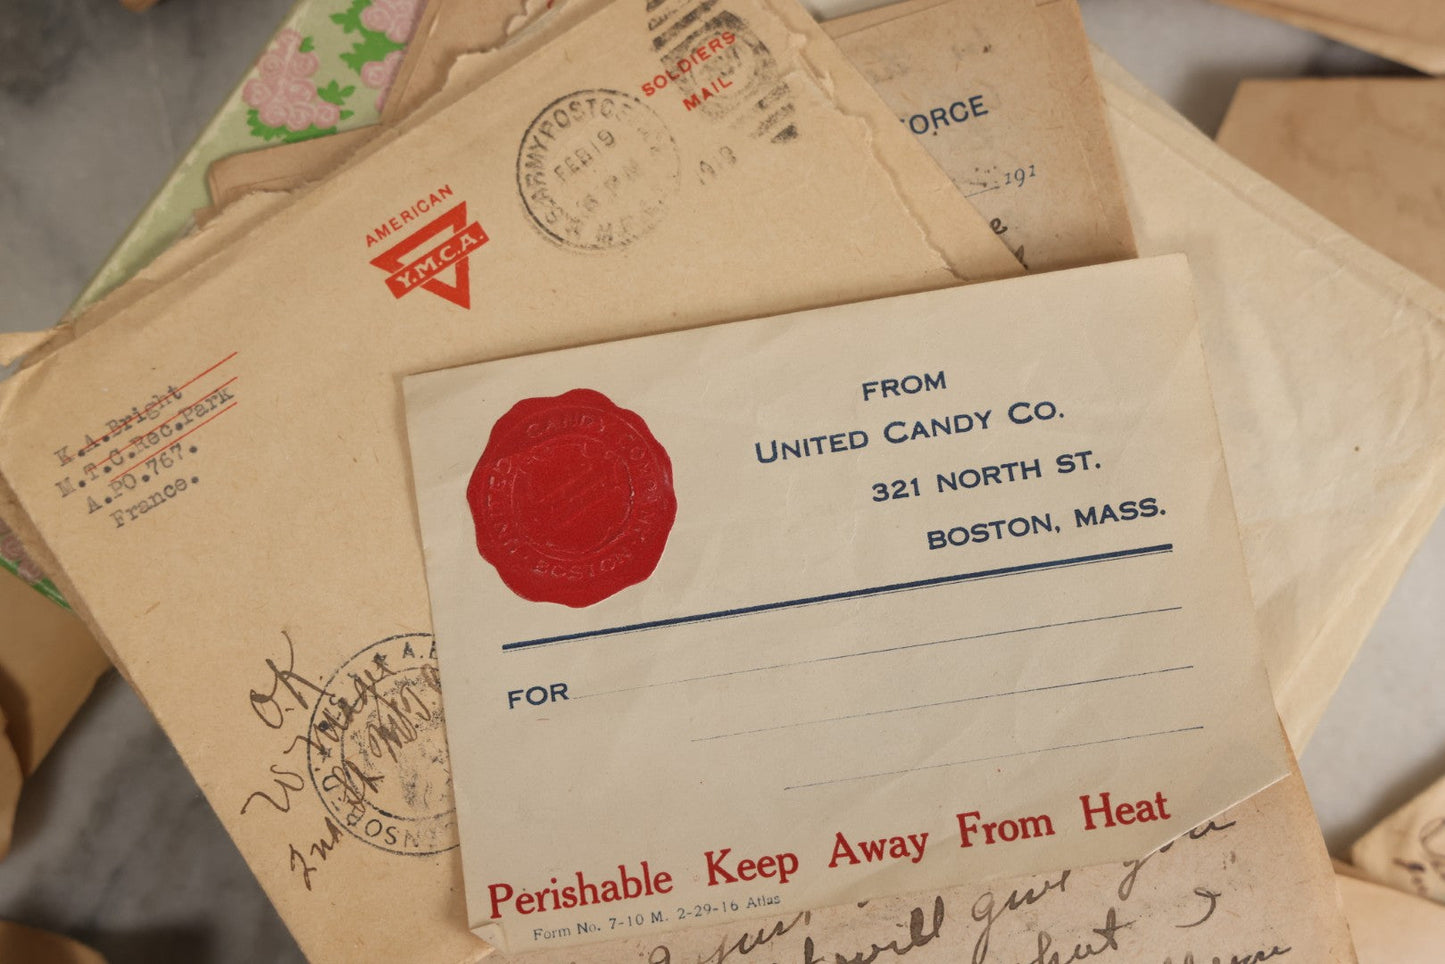 SOLDIERS
MAIL
U.S. ARMY POST OFFICE
FEB 19
1919
AMERICAN
Y.M.C.A.
ORCE
191
K.A.Bright
M.T.C.Rec.Park
A.PO.767.
France.
O.K.
A.E.
FROM
UNITED CANDY CO.
321 NORTH ST.
BOSTON, MASS.
UNITED CANDY COMPANY
BOSTON
FOR
Perishable Keep Away From Heat
Form No. 7-10 M. 2-29-16 Atlas
will give you
but I